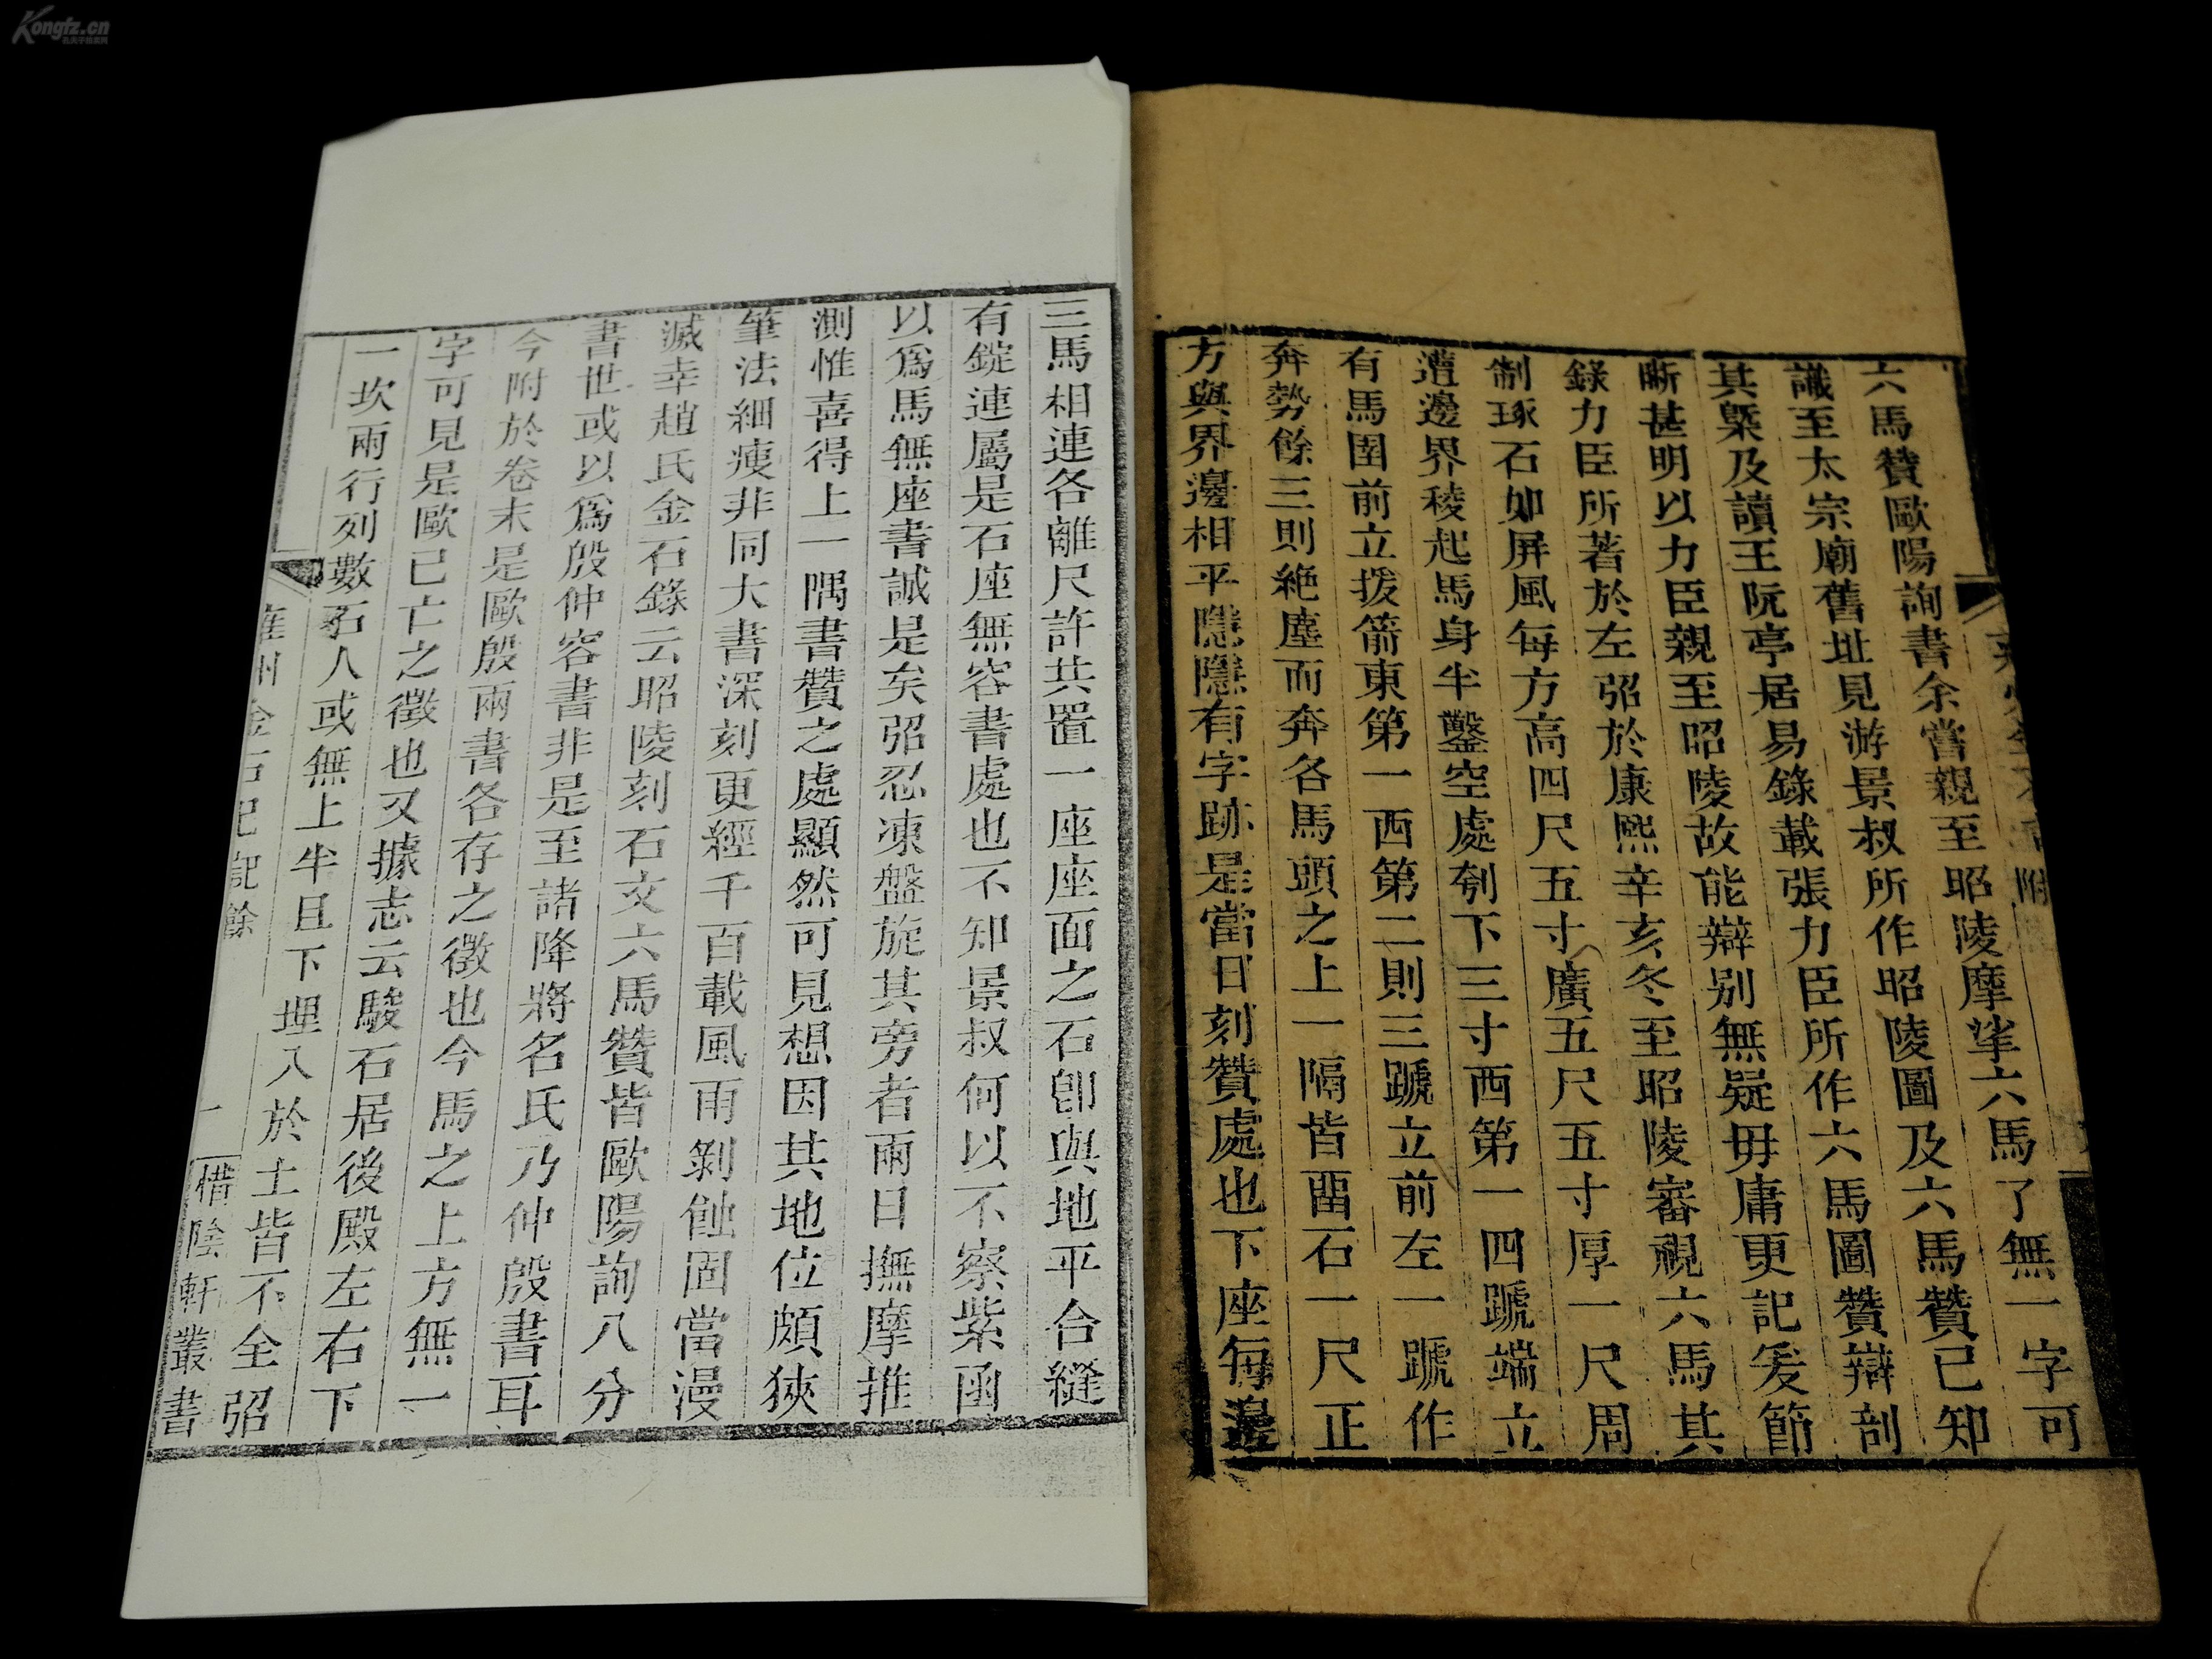 六馬贊歐陽詢書余嘗親至昭陵摩挲六馬了無一字可
識至太宗廟舊址見游景叔所作昭陵圖及六馬贊已知
其槩及讀王阮亭居易錄載張力臣所作六馬圖贊辯剖
晰甚明以力臣親至昭陵故能辯别無疑毋庸更記爰節
錄力臣所著於左弨於康熙辛亥冬至昭陵審視六馬其
制琢石如屏風每方高四尺五寸廣五尺五寸厚一尺周
遭邊界稜起馬身半鑿空處刳下三寸西第一四蹏端立
有馬圉前立拔箭東第一西第二則三蹏立前左一蹏作
奔勢餘三則絶塵而奔各馬頭之上一隅皆畱石一尺正
方與界邊相平隱隱有字跡是當日刻贊處也下座每邊
三馬相連各離尺許共置一座座面之石卽與地平合縫
有錠連屬是石座無容書處也不知景叔何以不察紫函
以爲馬無座書誠是矣弨忍凍盤旋其旁者兩日撫摩推
測惟喜得上一隅書贊之處顯然可見想因其地位頗狹
筆法細瘦非同大書深刻更經千百載風雨剝蝕固當漫
滅幸趙氏金石錄云昭陵刻石文六馬贊皆歐陽詢八分
書世或以爲殷仲容書非是至諸降將名氏乃仲殷書耳
今附於卷末是歐殷兩書各存之徵也今馬之上方無一
字可見是歐已亡之徵也又據志云駿石居後殿左右下
一坎兩行列數石人或無上半且下埋入於土皆不全弨
雍州金石記 記餘 一 惜陰軒叢書
Kongfz.cn